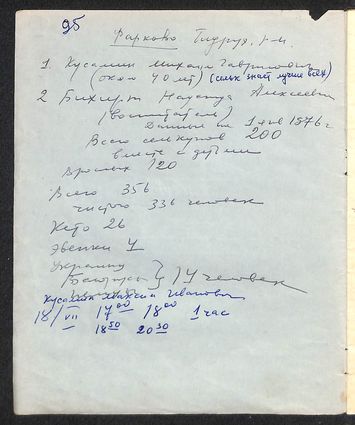 95
Фарково Туруд. р-н
1. Кусамин Михаил Гаврилович
(около 40 лет) (сельк знает лучше всех)
2. Бихерт Надежда Алексеевна
(воспитатель)
Данные на 1 янв 1976 г
Всего селькупов 200
вместе с детьми
Взрослых 120
Всего 356
чистого 336 человек
Кето 26
Эвенки 4
Украинцы
Белорусы } 14 человек
Кусамин Иванович
18/VII 17 00 18 00 1 час
18 50 20 30